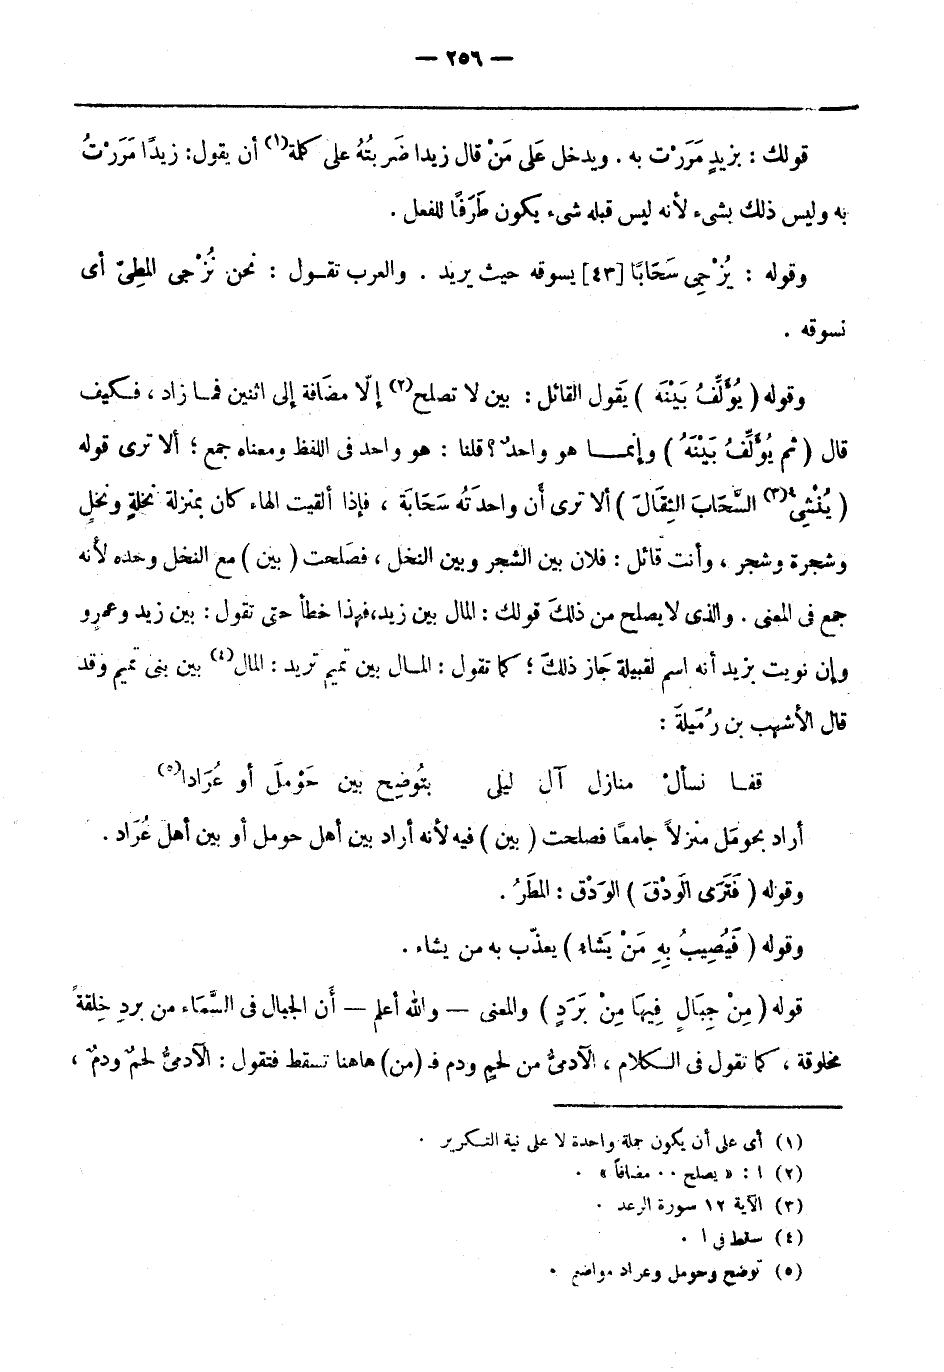 — ٢٥٦ —
قولك : بزيدٍ مَرَرْت به . ويدخل عَلَى مَنْ قال زيدا ضَربتُهُ على كلمة(١) أن يقول: زيدًا مَرَرْتُ
به وليس ذلك بشىء لأنه ليس قبله شىء يكون طَرَفًا للفعل .
وقوله : يُزْجِى سَحَابًا [٤٣] يسوقه حيث يريد . والعرب تقول : نحن نُزْجى المطِىّ أى
نسوقه .
وقوله ( يُؤَلِّفُ بَيْنَهُ ) يَقول القائل : بين لا تصلح(٢) إلّا مضَافة إلى اثنين فما زاد ، فكيف
قال ( ثم يُؤَلِّفُ بَيْنَهُ ) وإنما هو واحدٌ ؟ قلنا : هو واحد فى اللفظ ومعناه جمع ؛ ألا ترى قوله
( يُنْشِئُ(٣) السَّحَابَ الثِقَالَ ) ألا ترى أَن واحدَتَهُ سَحَابَة ، فإذا ألقيت الهاء كان بمنزلة نخلةٍ ونخلٍ
وشجرة وشجر ، وأنت قائل : فلان بين الشجر وبين النخل ، فصَلحت ( بين ) مع النخل وحده لأنه
جمع فى المعنى . والذى لايصلح من ذلك قولك : المال بين زيد، فهذا خطأ حتى تقول : بين زيد وعمرٍو
وإن نويت بزيد أنه اسم لقبيلة جَاز ذلك ؛ كما تقول : المال بين تميم تريد : المال(٤) بين بنى تميم وقد
قال الأشهب بن رُمَيلَة :
قفا نسألْ منازل آل ليلى بتُوضِح بين حَوْمَلَ أو عُرَادا(٥)
أراد بحومَل منزلاً جامعًا فصلحت ( بين ) فيه لأنه أراد بين أهل حومل أو بين أهل عُرَاد .
وقوله ( فَتَرَى الَودْقَ ) الوَدْق : المطَرُ .
وقوله ( فَيُصِيبُ بِهِ مَنْ يَشاء ) يعذّب به من يشاء .
قوله ( مِنْ جِبَالٍ فِيهَا مِنْ بَرَدٍ ) والمعنى — والله أعلم — أَن الجبال فى السَّمَاء من بردٍ خِلقةً
مخلوقة ، كما تقول فى الكلام ، الآدمىُّ من لحمٍ ودم فـ (من) هاهنا تسقط فتقول : الآدمىُّ لحمٌ ودمٌ ،
(١) أى على أن يكون جملة واحدة لا على نية التكرير .
(٢) ا : « يصلح ٠٠ مضافاً » .
(٣) الآية ١٢ سورة الرعد .
(٤) سقط فى ا .
(٥) توضح وحومل وعراد مواضع .